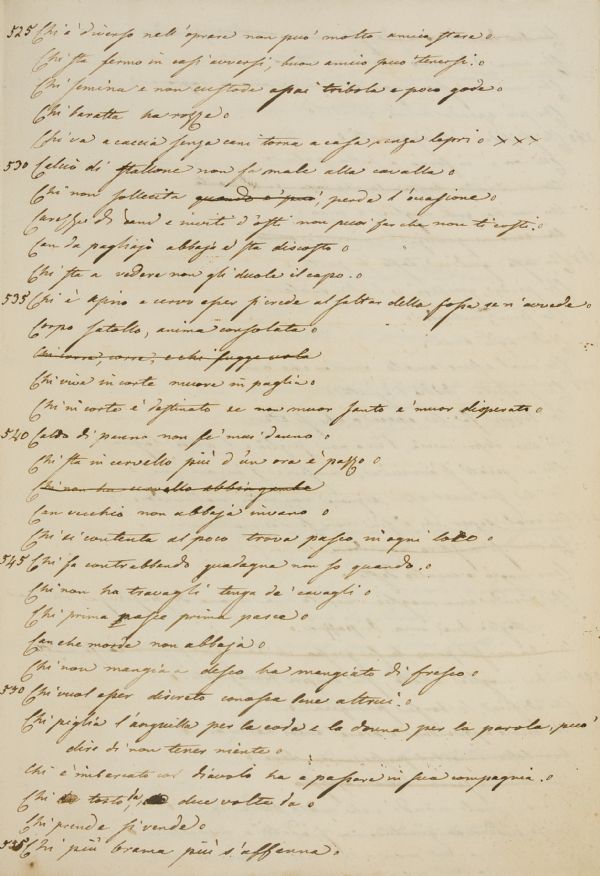 525 Chi è diverso nell'oprare non può molto amico stare
Chi sta fermo in casi avversi, buon amico può tenersi.
Chi semina e non custode assai tribola e poco gode
Chi baratta ha rozze
Chi va a caccia senza cani torna a casa senza lepri xxx
530 Calcio di stallone non fa male alla cavalla
Chi non sollecita quando è può, perde l'occasione
Carezze di cani e inviti d'osti non puoi far che non ti costi.
Can da pagliajo abbaja e sta discosto
Chi sta a vedere non gli duole il capo.
535 Chi è asino e cervo esser si crede al saltar della fossa se n'avvede
Corpo satollo, anima consolata
Chi corre, corre, e chi fugge vola
Chi vive in corte muore in paglia
Chi in corte è destinato se non muor santo e' muor disperato
540 Caldo di panno non fe' mai danno
Chi sta in cervello più d'un ora è pazzo
Chi non ha cervello abbia gambe
Can vecchio non abbaja invano
Chi si contenta al poco trova pasco in ogni loco
545 Chi fa contrabbando guadagna non so quando.
Chi non ha travagli tenga de' cavagli
Chi prima nasce prima pasce
Can che morde non abbaja
Chi non mangia a desco ha mangiato di fresco
550 Chi vuol esser discreto conosca lane altrui.
Chi piglia l'anguilla per la coda e la donna per la parola, può
dire di non tener niente
Chi è imbarcato col diavolo ha a passare in sua compagnia.
Chi tosto da, due volte da
Chi prende si vende
555 Chi più brama più s'affanna